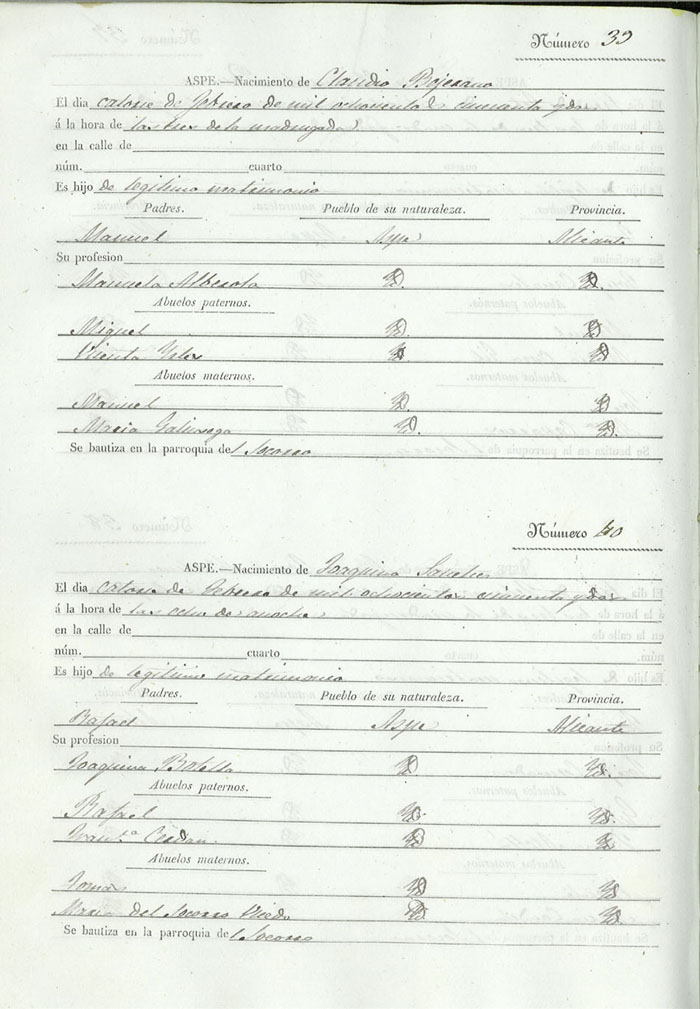 Número 39
ASPE.—Nacimiento de Claudio Bojerano
El dia catorse de Febrero de mil ochocientos cincuenta y dos
á la hora de las tres de la madrugada
en la calle de
núm. cuarto
Es hijo de legitimo matrimonio
Padres. Pueblo de su naturaleza. Provincia.
Manuel Aspe Alicante
Su profesion
Manuela Alberola D. D.
Abuelos paternos.
Miguel D. D.
Vicenta D. D.
Abuelos maternos.
Manuel D. D.
Maria D. D.
Se bautiza en la parroquia del Socorro
Número 40
ASPE.—Nacimiento de Joaquina Sanches
El dia catorse de Febrero de mil ochocientos cincuenta y dos
á la hora de las ocho de anoche
en la calle de
núm. cuarto
Es hijo de legitimo matrimonio
Padres. Pueblo de su naturaleza. Provincia.
Rafael Aspe Alicante
Su profesion
Joaquina Botella D. D.
Abuelos paternos.
Rafael D. D.
Fran.ca Cerdan D. D.
Abuelos maternos.
Tomas D. D.
Maria del Socorro D. D.
Se bautiza en la parroquia del Socorro